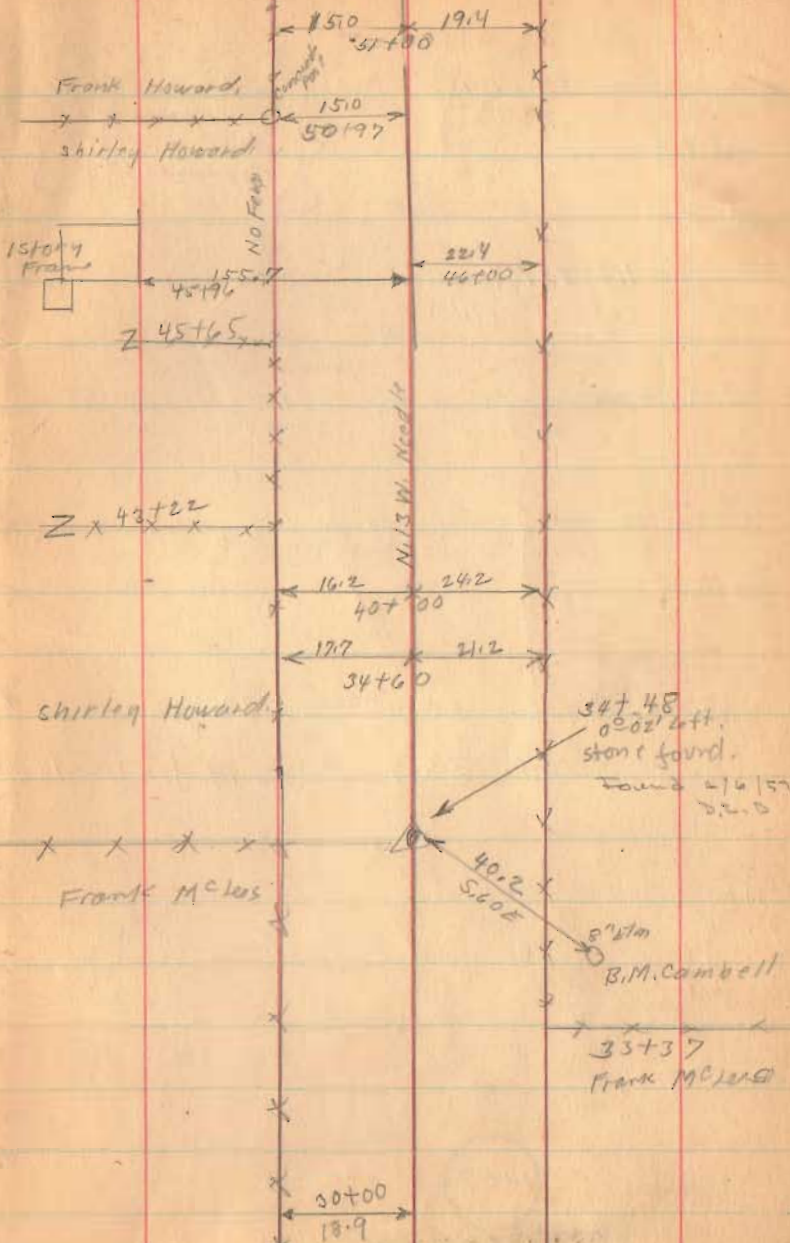 15.0 19.4
51+00
Frank Howard.
15.0
50+97
Shirley Howard.
No Fence
1 story
Frame
22.4
46+00
155.7
45+96
Z 45+65
N.13 W. Needle
Z 43+22
16.2 24.2
40+00
17.7 21.2
34+60
Shirley Howard.
34+48
0°-02' Left.
stone found.
Found
40.2
S.60E
Frank McLees
8" Elm
B.M. Cambell
33+37
Frank McLees
30+00
18.9